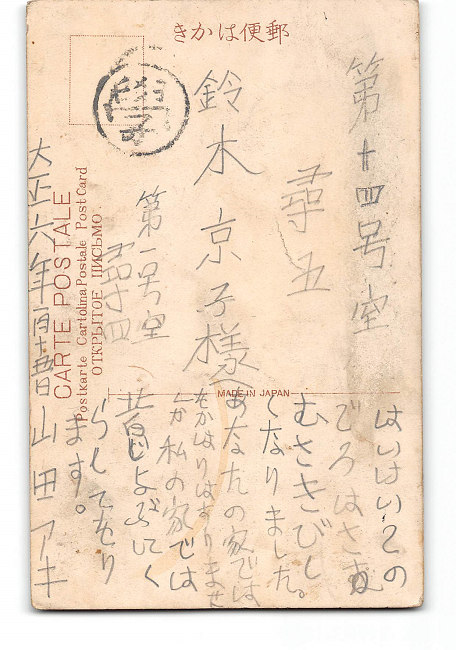 きかは便郵
第十四号室
尋五
鈴木京子様
第一号室
尋四
大正六年一月十五日
山田アキ
學
CARTE POSTALE
Postkarte Cartolina Postale Post Card
ОТКРЫТОЕ ПИСЬМО
MADE IN JAPAN
はいけいこの
ごろはさむ
むさきびし
くなりました。
あなたの家では
おかはりはありませ
んか私の家では
皆じょぶにく
らしており
ます。